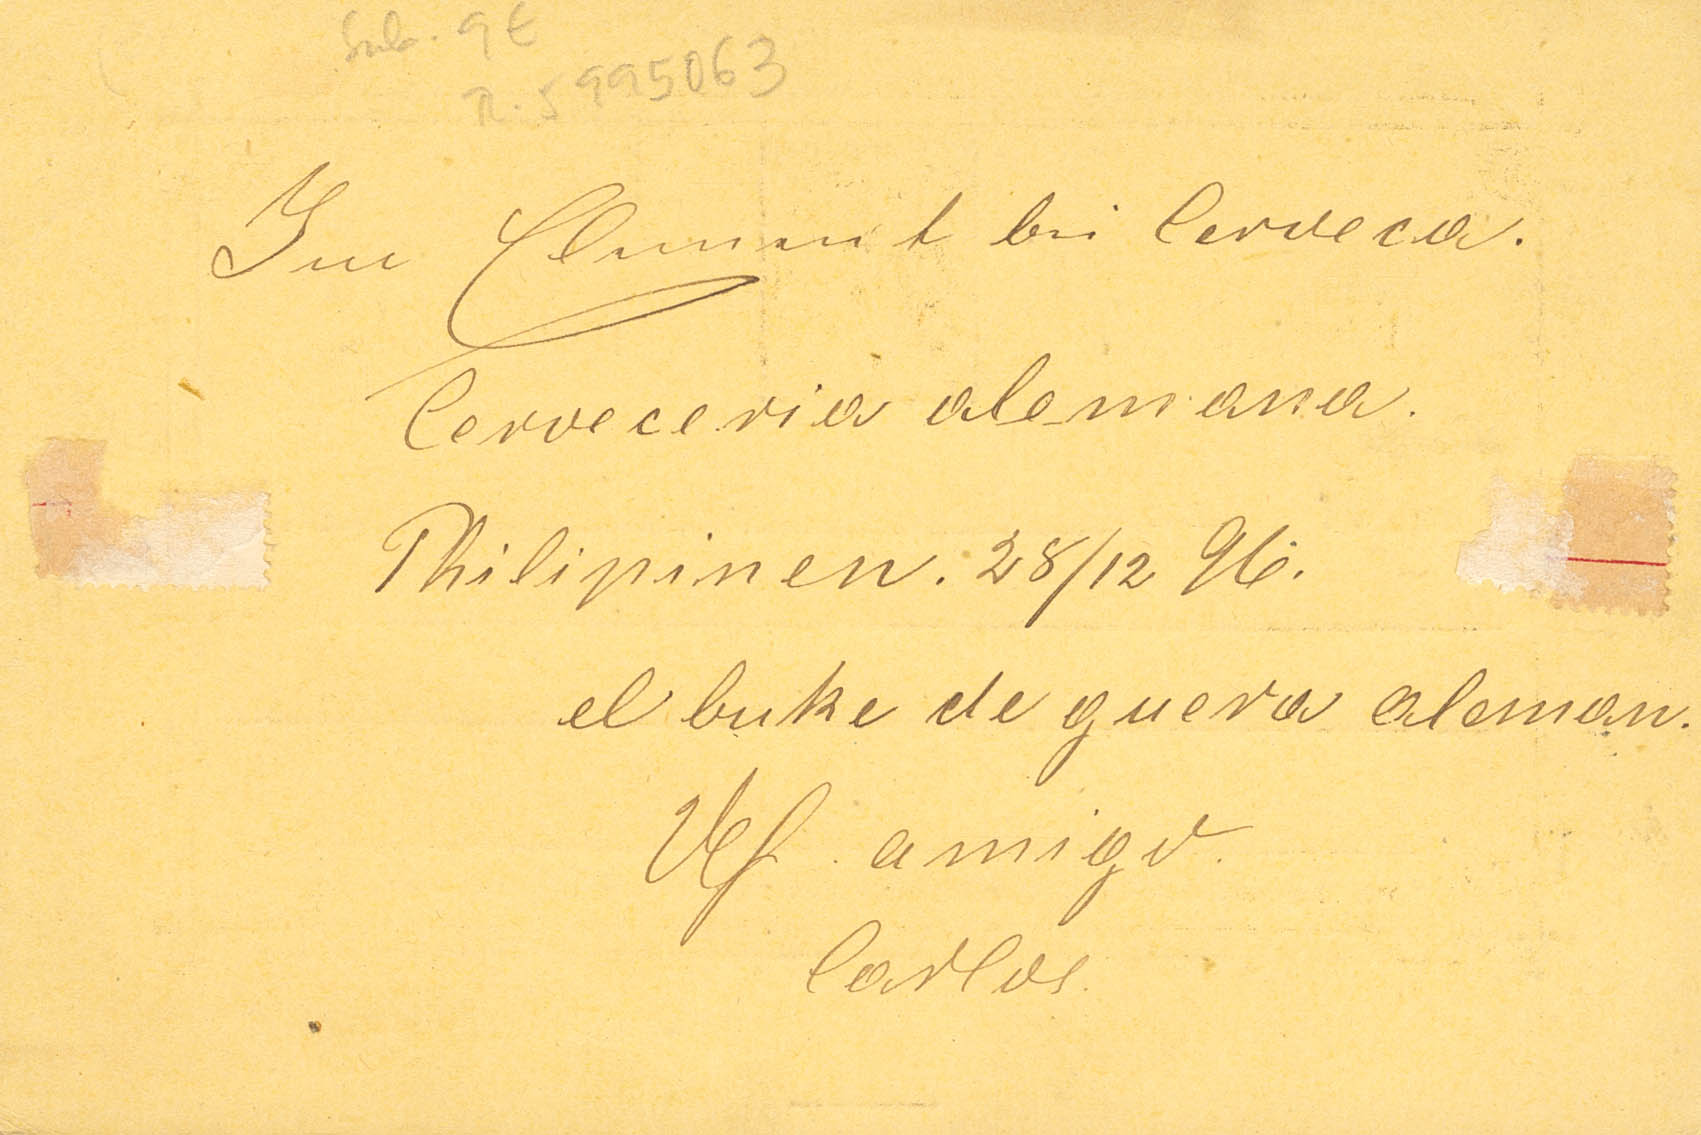 Sub. 9 €
R. 5995063
Clement bei Cerveca.
Cerveceria alemana.
Philipinen. 28/12 96.
el buke de guera aleman.
amigo.
Carlos.